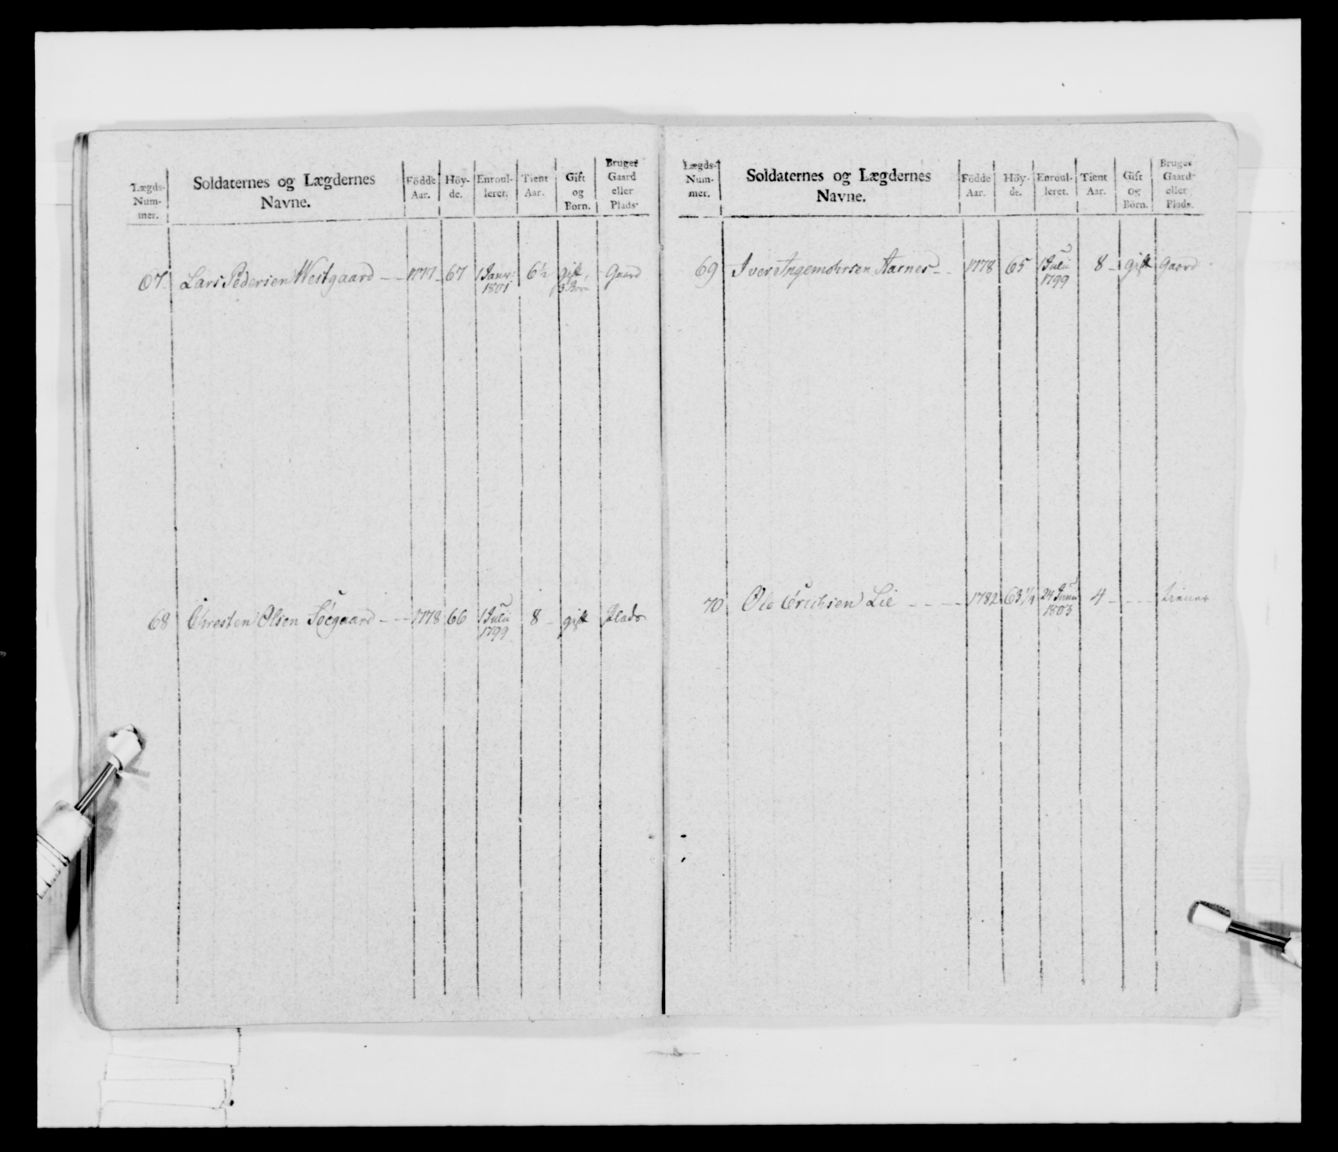 Lægds-
Num-
mer.
Soldaternes og Lægdernes
Navne.
Födde
Aar.
Höy-
de.
Enroul-
leret.
Tient
Aar.
Gift
og
Börn.
Bruger
Gaard
eller
Plads.
67. Lars Pedersen Westgaard - - 1777 67 1 Janv: 1801 6½ gift, 3 Börn Gaard
68 Chresten Olsen Söegaard - - - 1778 66 1 Julii 1799 8 - gift Plads
Lægds-
Num-
mer.
Soldaternes og Lægdernes
Navne.
Födde
Aar.
Höy-
de.
Enroul-
leret.
Tient
Aar.
Gift
og
Börn.
Bruger
Gaard
eller
Plads.
69 Iver Aarnes - 1778 65 1 Julii 1799 8 - gift Gaard
70 Ole Erichsen Lie - - - - 1782 63¼ 24 Junii 1803 4 - - - - tiener